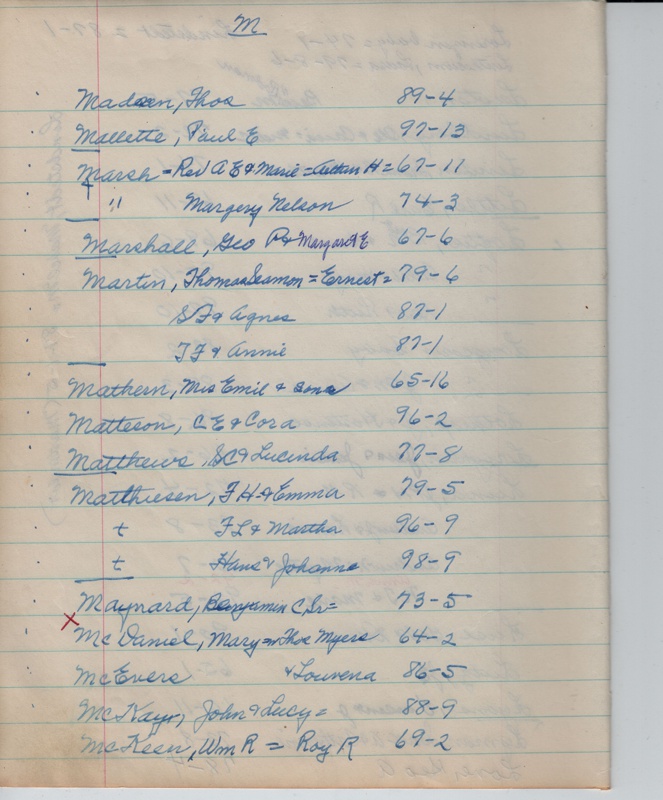 M
Madsen, Thos 89-4
Mallette, Paul E 97-13
Marsh = Rev A E & Marie = Arthur H = 67-11
t " Margery Nelson 74-3
Marshall, Geo P & Margaret E 67-6
Martin, Thomas Seamon = Ernest = 79-6
S F & Agnes 87-1
T F & Annie 87-1
Mathern, Mrs Emil & sons 65-16
Matteson, C E & Cora 96-2
Matthews, S C & Lucinda 77-8
Matthiesen, F H & Emma 79-5
t F L & Martha 96-9
t Hans & Johanna 98-9
Maynard, Benjamin C, Sr = 73-5
x Mc Daniel, Mary = Thos Myers 64-2
McEvers & Louvena 86-5
McKay, John & Lucy = 88-9
McKeen, Wm R = Roy R 69-2